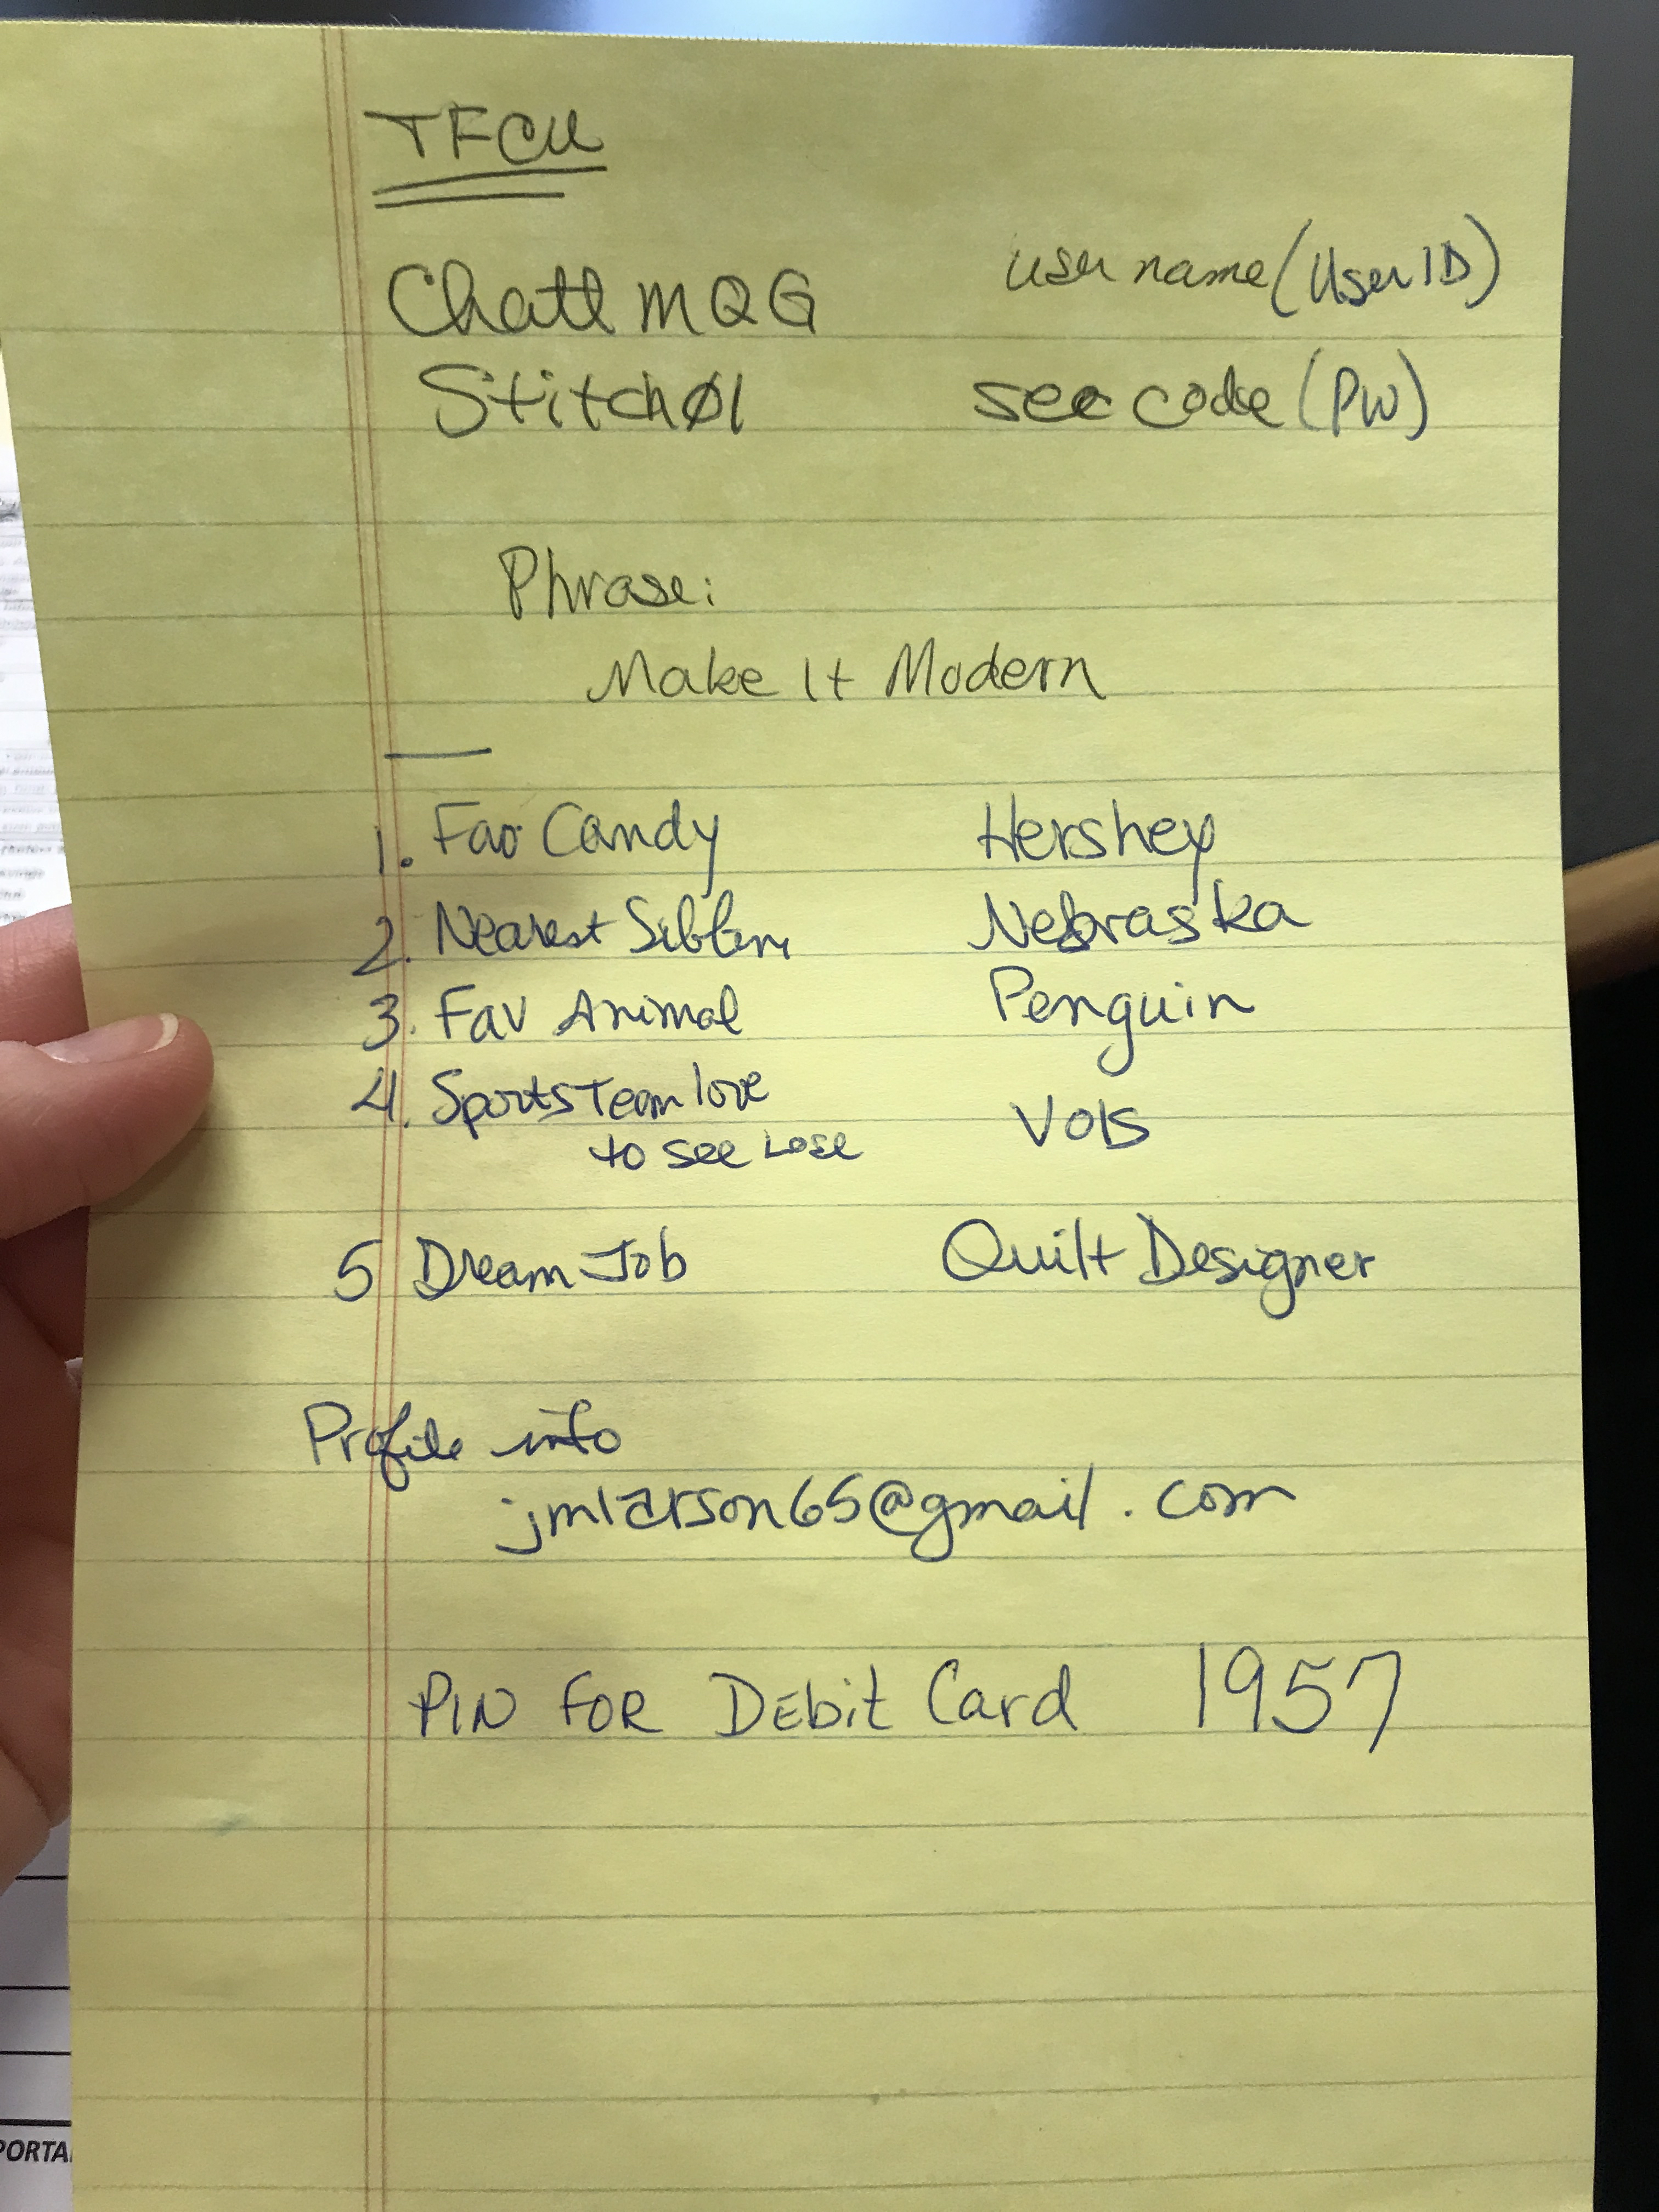 TFCU
ChattMQG username (User ID)
Stitch01 sec code (PW)
Phrase:
Make It Modern
1. Fav Candy Hershey
2. Nearest Sibling Nebraska
3. Fav Animal Penguin
4. Sports Team love
to see Lose Vols
5 Dream Job Quilt Designer
Profile info
jmlarson65@gmail.com
PIN FOR DEbit Card 1957
PORTA